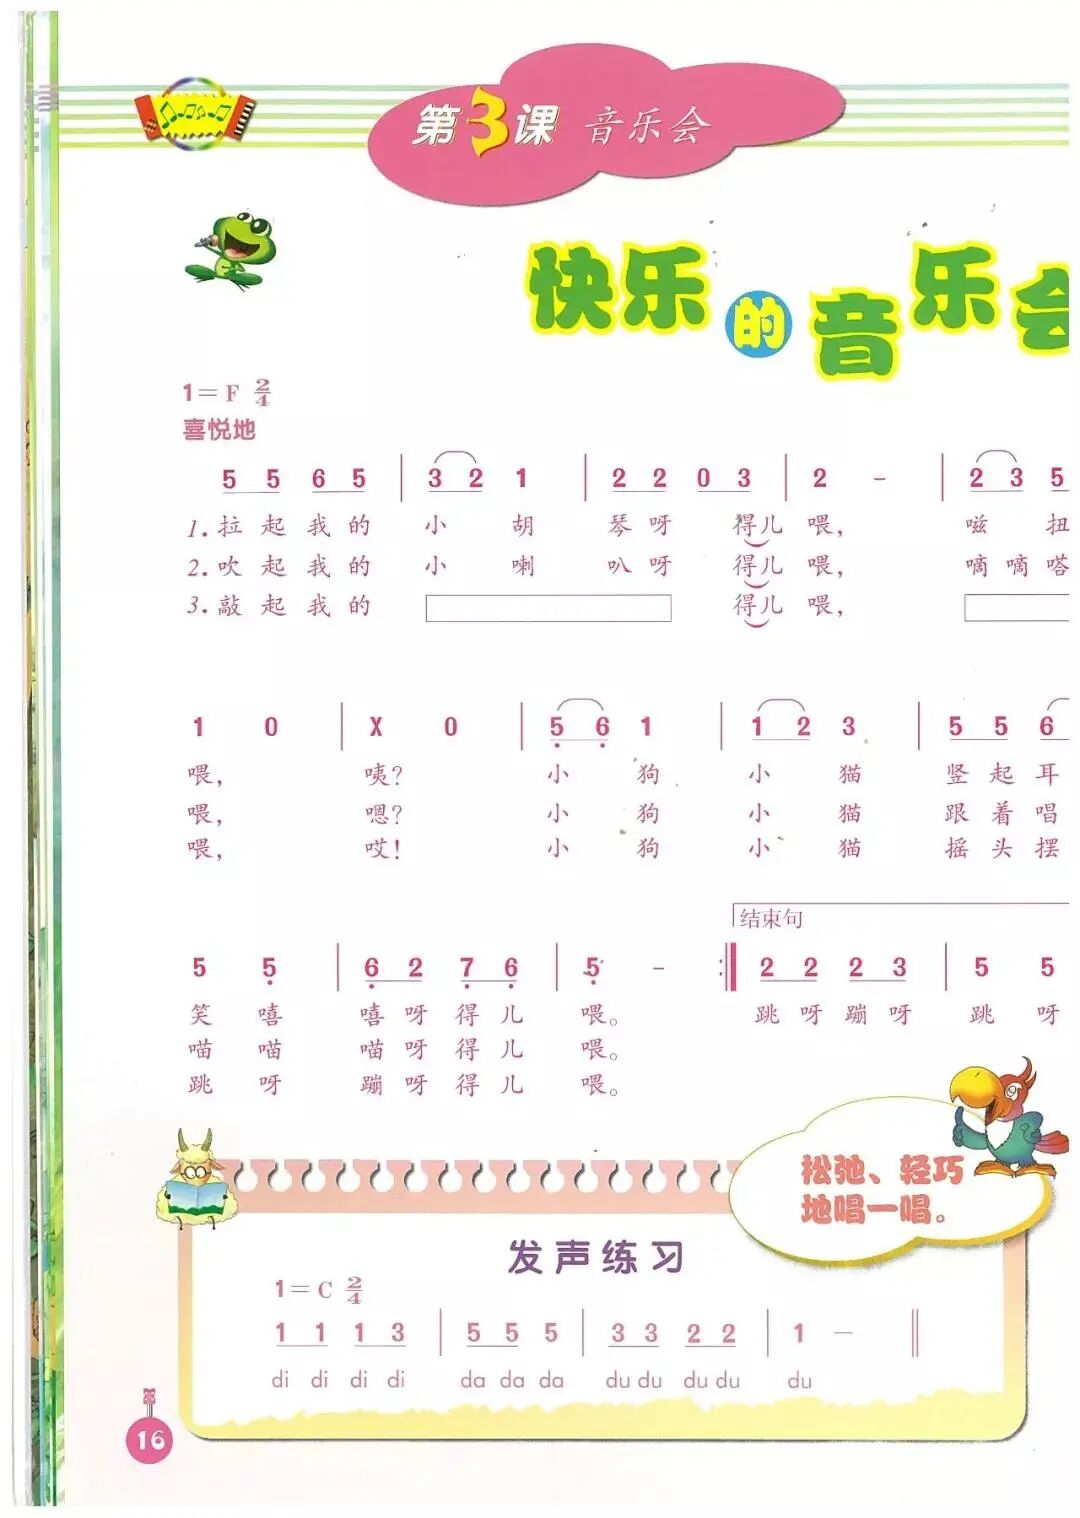 第3课 音乐会
快乐的音乐会
1=F 2/4
喜悦地
5 5 6 5 | 3 2 1 | 2 2 0 3 | 2 - | 2 3 5
1.拉起我的 小 胡 琴呀 得儿喂, 嗞 扭
2.吹起我的 小 喇 叭呀 得儿喂, 嘀嘀嗒
3.敲起我的 得儿喂,
1 0 | X 0 | 5 6 1 | 1 2 3 | 5 5 6
喂, 咦? 小 狗 小 猫 竖起耳
喂, 嗯? 小 狗 小 猫 跟着唱
喂, 哎! 小 狗 小 猫 摇头摆
结束句
5 5 | 6 2 7 6 | 5 - :| 2 2 2 3 | 5 5
笑 嘻 嘻呀得儿 喂。 跳呀蹦呀 跳 呀
喵 喵 喵呀得儿 喂。
跳 呀 蹦呀得儿 喂。
松弛、轻巧
地唱一唱。
发声练习
1=C 2/4
1 1 1 3 | 5 5 5 | 3 3 2 2 | 1 — ‖
di di di di da da da du du du du du
16